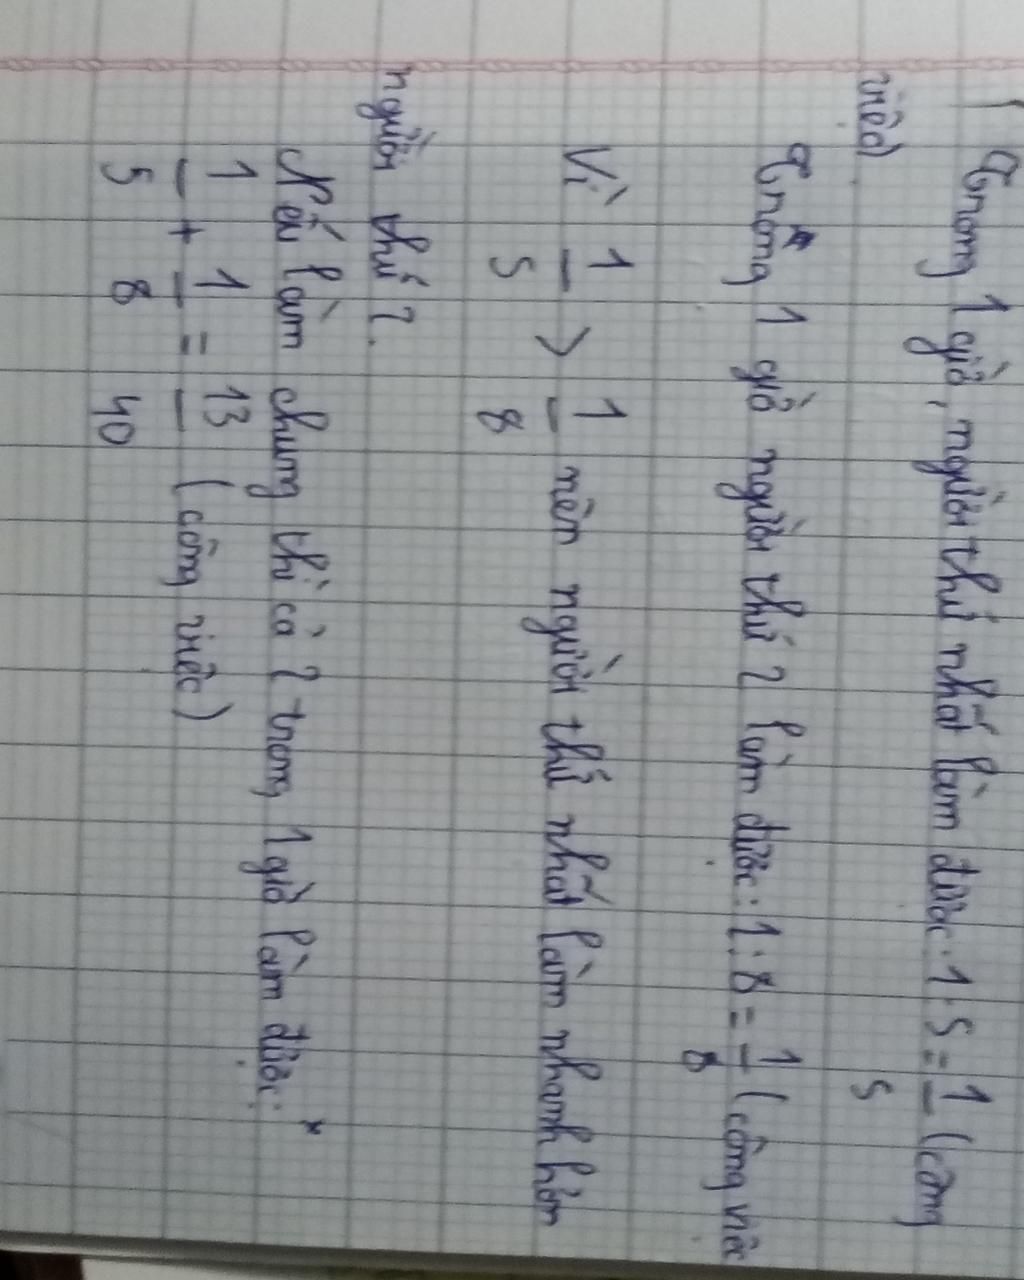 Trong 1 giờ, người thứ nhất làm được: 1:5 = 1/5 (công
việc)
Trong 1 giờ người thứ 2 làm được: 1:8 = 1/8 (công việc
Vì 1/5 > 1/8 nên người thứ nhất làm nhanh hơn
người thứ 2.
Nếu làm chung thì cả 2 trong 1 giờ làm được:
1/5 + 1/8 = 13/40 (công việc)